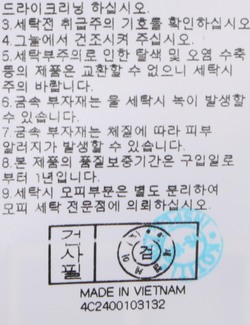 드라이크리닝 하십시오.
3.세탁전 취급주의 기호를 확인하십시오
4.그늘에서 건조시켜 주십시오.
5.세탁부주의로 인한 탈색 및 오염 수축
등의 제품은 교환할 수 없으니 세탁시
주의 바랍니다.
6.금속 부자재는 물 세탁시 녹이 발생할
수 있습니다.
7.금속 부자재는 체질에 따라 피부
알러지가 발생할 수 있습니다.
8.본 제품의 품질보증기간은 구입일로
부터 1년입니다.
9.세탁시 모피부분은 별도 분리하여
모피 세탁 전문점에 의뢰하십시오.
검사필
검
MADE IN VIETNAM
4C2400103132